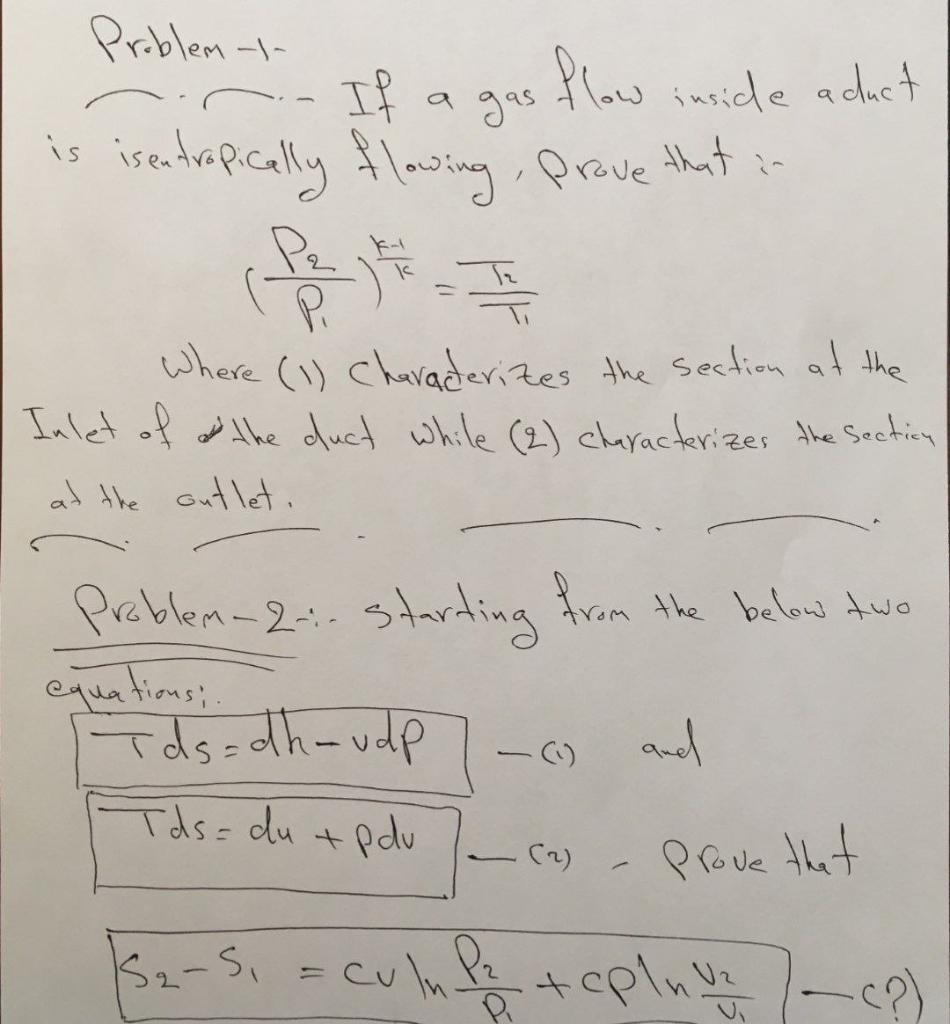 Problem -1-
If a gas flow inside a duct
is isentropically flowing, prove that :-
(P2/P1)^((k-1)/k) = T2/T1
Where (1) characterizes the section at the
Inlet of the duct while (2) characterizes the section
at the outlet.
Problem-2-:- starting from the below two
equations:.
Tds = dh - vdp —(1) and
Tds = du + pdv —(2) - prove that
S2-S1 = cv ln P2/P1 + cp ln v2/v1 —(?)